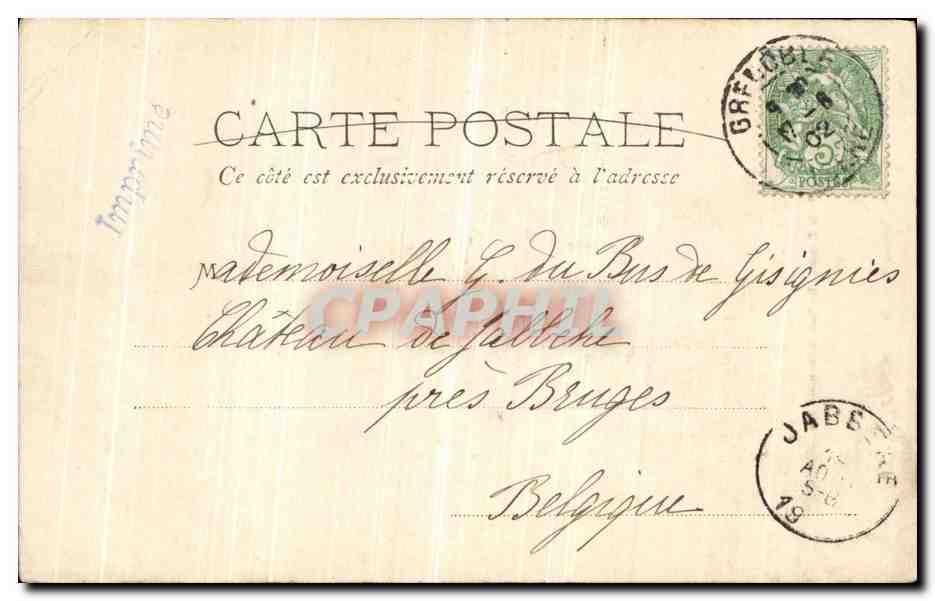 CARTE POSTALE
Ce côté est exclusivement réservé à l'adresse
Imprimé
GRENOBLE
17 - 8
02
ISERE
5
POSTES
Mademoiselle G. du Bus de Gisignies
CPAPHIL
Château de Jabbeke
près Bruges
Belgique
JABBEKE
AO
5-6
19